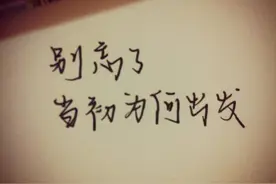 别忘了
当初为何出发